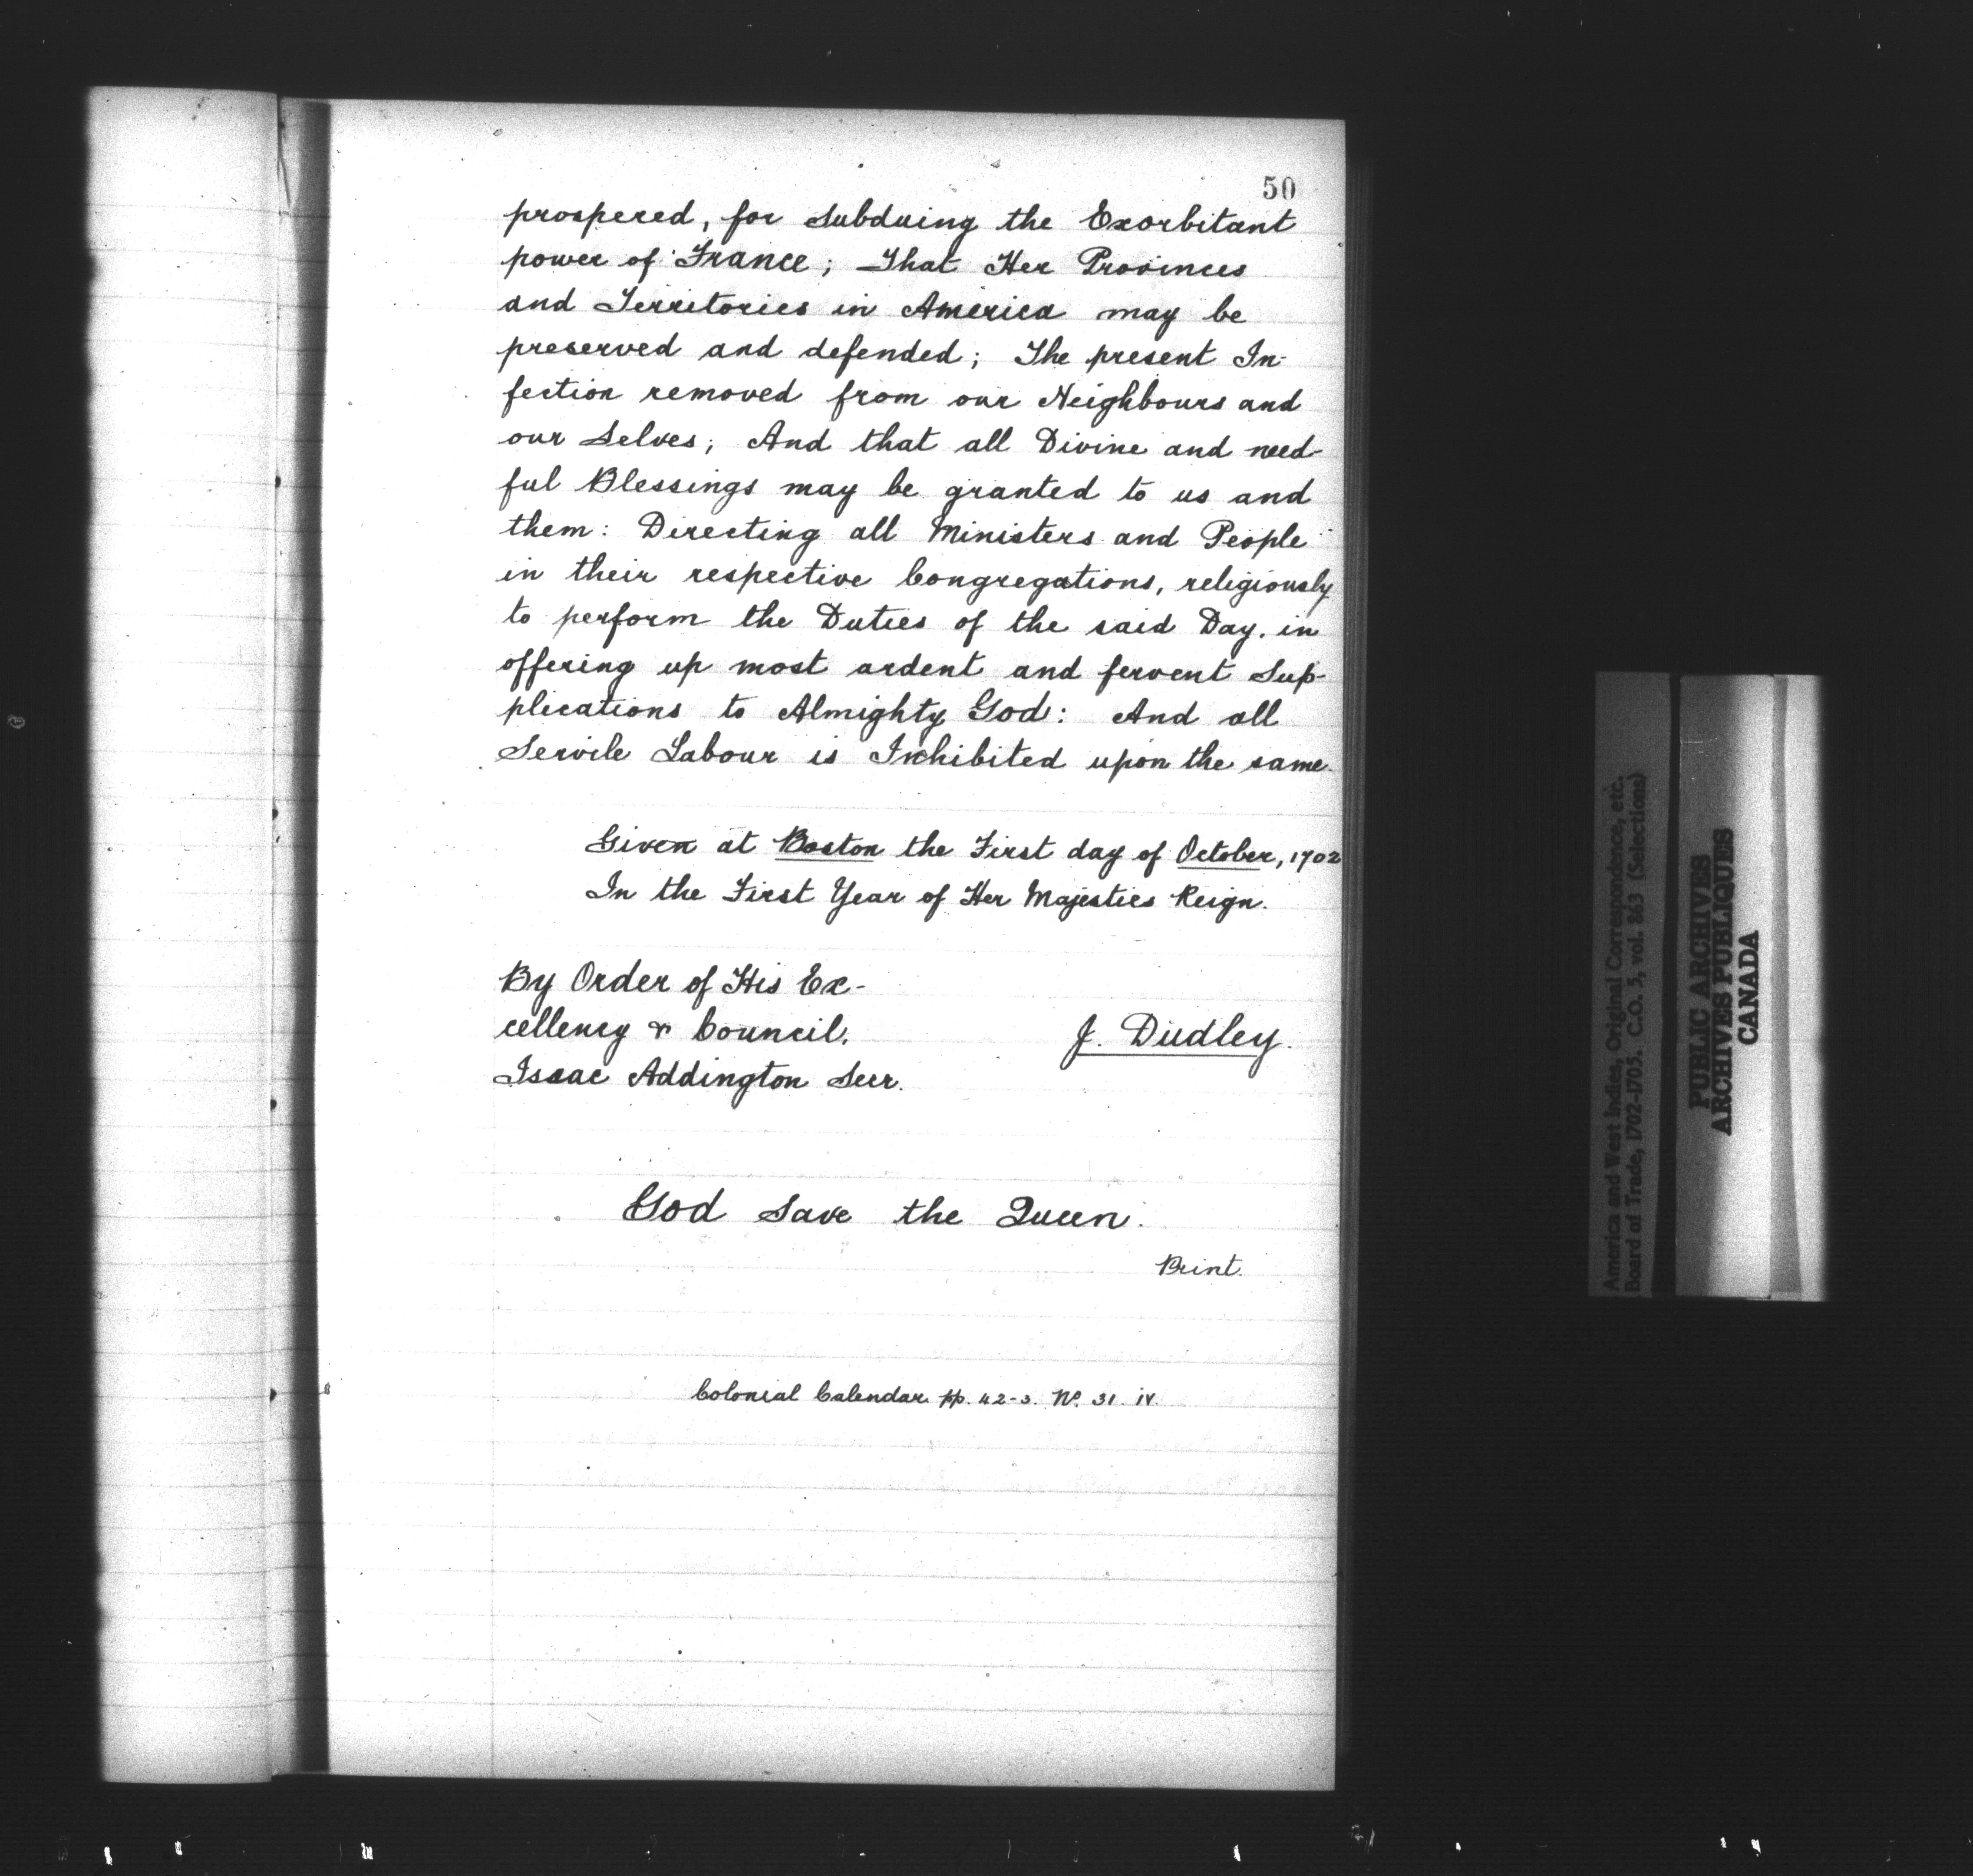 50
prospered, for Subduing the Exorbitant
power of France; That Her Provinces
and Territories in America may be
preserved and defended; The present In-
fection removed from our Neighbours and
our Selves; And that all Divine and need-
ful Blessings may be granted to us and
them: Directing all Ministers and People
in their respective Congregations, religiously
to perform the Duties of the said Day, in
offering up most ardent and fervent Sup-
plications to Almighty God: And all
Servile Labour is Inhibited upon the same.
Given at Boston the First day of October, 1702
In the First Year of Her Majesties Reign.
By Order of His Ex-
cellency & Council.
Isaac Addington Secr.
J. Dudley.
God Save the Queen.
Print.
Colonial Calendar pp. 42-3. No. 31. iv.
America and West Indies, Original Correspondence, etc.
Board of Trade, 1702-1705. C.O. 5, vol. 863 (Selections)
PUBLIC ARCHIVES
ARCHIVES PUBLIQUES
CANADA